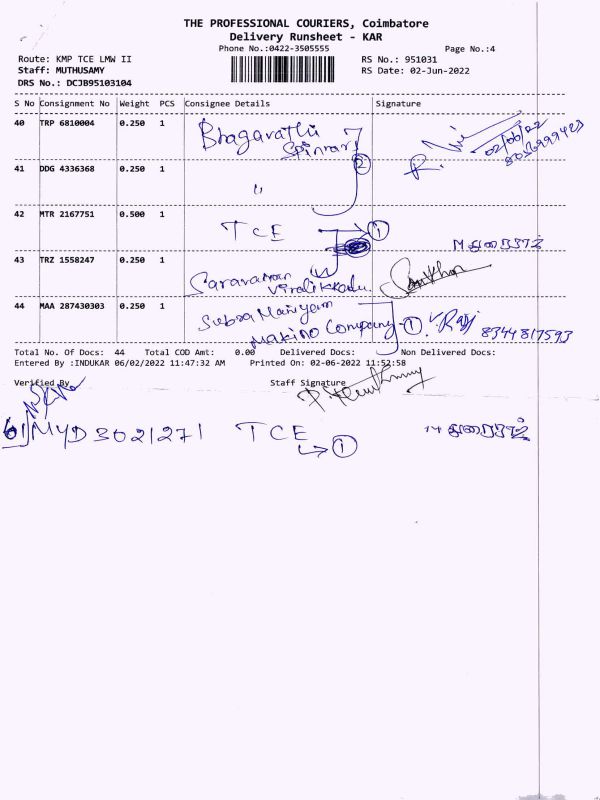 THE PROFESSIONAL COURIERS, Coimbatore
Delivery Runsheet - KAR
Phone No.:0422-3505555
Page No.:4
Route: KMP TCE LMW II
RS No.: 951031
Staff: MUTHUSAMY
RS Date: 02-Jun-2022
DRS No.: DCJB95103104
S No Consignment No Weight PCS Consignee Details Signature
40 TRP 6810004 0.250 1 Bhagavathi
Spinnars
02/06/22
41 DDG 4336368 0.250 1 "
2
42 MTR 2167751 0.500 1 TCE 1
43 TRZ 1558247 0.250 1 Saravanan
44 MAA 287430303 0.250 1 Subramaniyam
Makino Company 1 V.Raj 8344817593
Total No. Of Docs: 44 Total COD Amt: 0.00 Delivered Docs: Non Delivered Docs:
Entered By :INDUKAR 06/02/2022 11:47:32 AM Printed On: 02-06-2022 11:52:58
Verified By Staff Signature
MYD 3021271 TCE
1